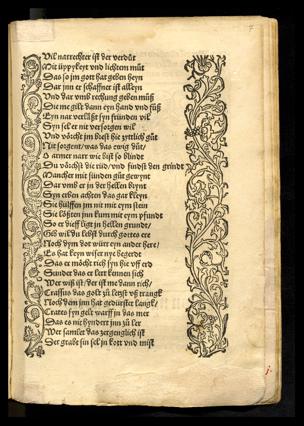 Vil narrechter ist der verdůt
Mit üppykeyt vnd lichtem můt
Das so im gott hat geben heyn
Dar jnn er schaffner ist alleyn
Vnd dar vmb rechung geben můß
Die me gilt dann eyn hand vnd fůß
Eyn narr verloßt syn fründen vil
Syn sel er nit versorgen wil
Vnd vörcht jm brest hie zyttlich gůt
Nit sorgent / was das ewig důt /
O armer narr wie bist so blindt
Du vörchst die rüd / vnd findst den gründt
Mancher mit sünden gůt gewynt
Dar vmb er jn der hellen brynt
Syn erben achten das gar kleyn
Sie hülffen jm nit mit eym steyn
Sie lößten jnn kum mit eym pfundt
So er dieff ligt jn hellen grundt /
Gib wil du lebst durch gottes ere
Noch dym dot würt eyn ander here /
Es hat keyn wiser nye begerdt
Das er möcht rich syn hie vff erd
Sunder das er lert kennen sich
Wer wiß ist / der ist me dann rich /
Crassus das golt zů letst vß tranck
Noch dem jnn hat gedürstet langk
Crates syn gelt warff jn das mer
Das es nit hyndert jnn zů ler
Wer samlet das zergenglich ist
Der grabt sin sel jn kott vnd mist